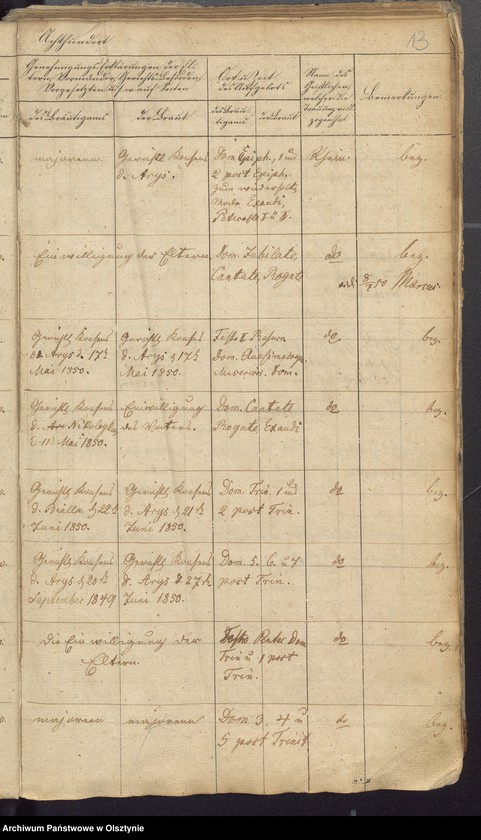 Achthundert
13
Genehmigungserklärungen der El-
tern, Vormünder, Gerichts-Behörden,
Vorgesetzten u.s.w. auf Seiten
Ort u. Zeit
des Aufgebots
Name des
Geistlichen,
welcher die
Trauung
Bemerkungen.
des Bräutigams
der Braut
des Bräu-
tigams
der Braut
majorenn
Gerichtl. Konsens
d. Arys.
Dom Epiph., 1 und
2 post Epiph.
zum wiederholt.
Male Exaudi,
Rhein.
bez.
Einwilligung der Eltern
Dom. Jubilate,
Cantate, Rogate
do
bez.
Gerichtl. Konsens
Arys d. 17t
Mai 1850.
Gerichtl. Konsens
d. Arys d 17t
Mai 1850.
Festo I
Dom. Quasimodogen.
Misericord. Dom.
do
bez.
Gerichtl. Konsens
d. 11t Mai 1850.
Einwilligung
des Vaters.
Dom. Cantate
Rogate, Exaudi
do
bez.
Gerichtl. Konsens
d. Bialla d 22t
Juni 1850.
Gerichtl. Konsens
d. Arys d 21t
Juni 1850.
Dom. Trin. 1 und
2 post Trin.
do
bez.
Gerichtl. Konsens
d. Arys d 20t
September 1849
Gerichtl. Konsens
d. Arys d. 27t
Juni 1850.
Dom. 5. 6. u 7
post Trin.
do
bez.
Die Einwilligung der
Eltern.
Festo
Trin u 1 post
Trin.
do
bez.
majorenn
majorenn
Dom 3, 4 u
5 post Trinit
do
bez.
Archiwum Państwowe w Olsztynie